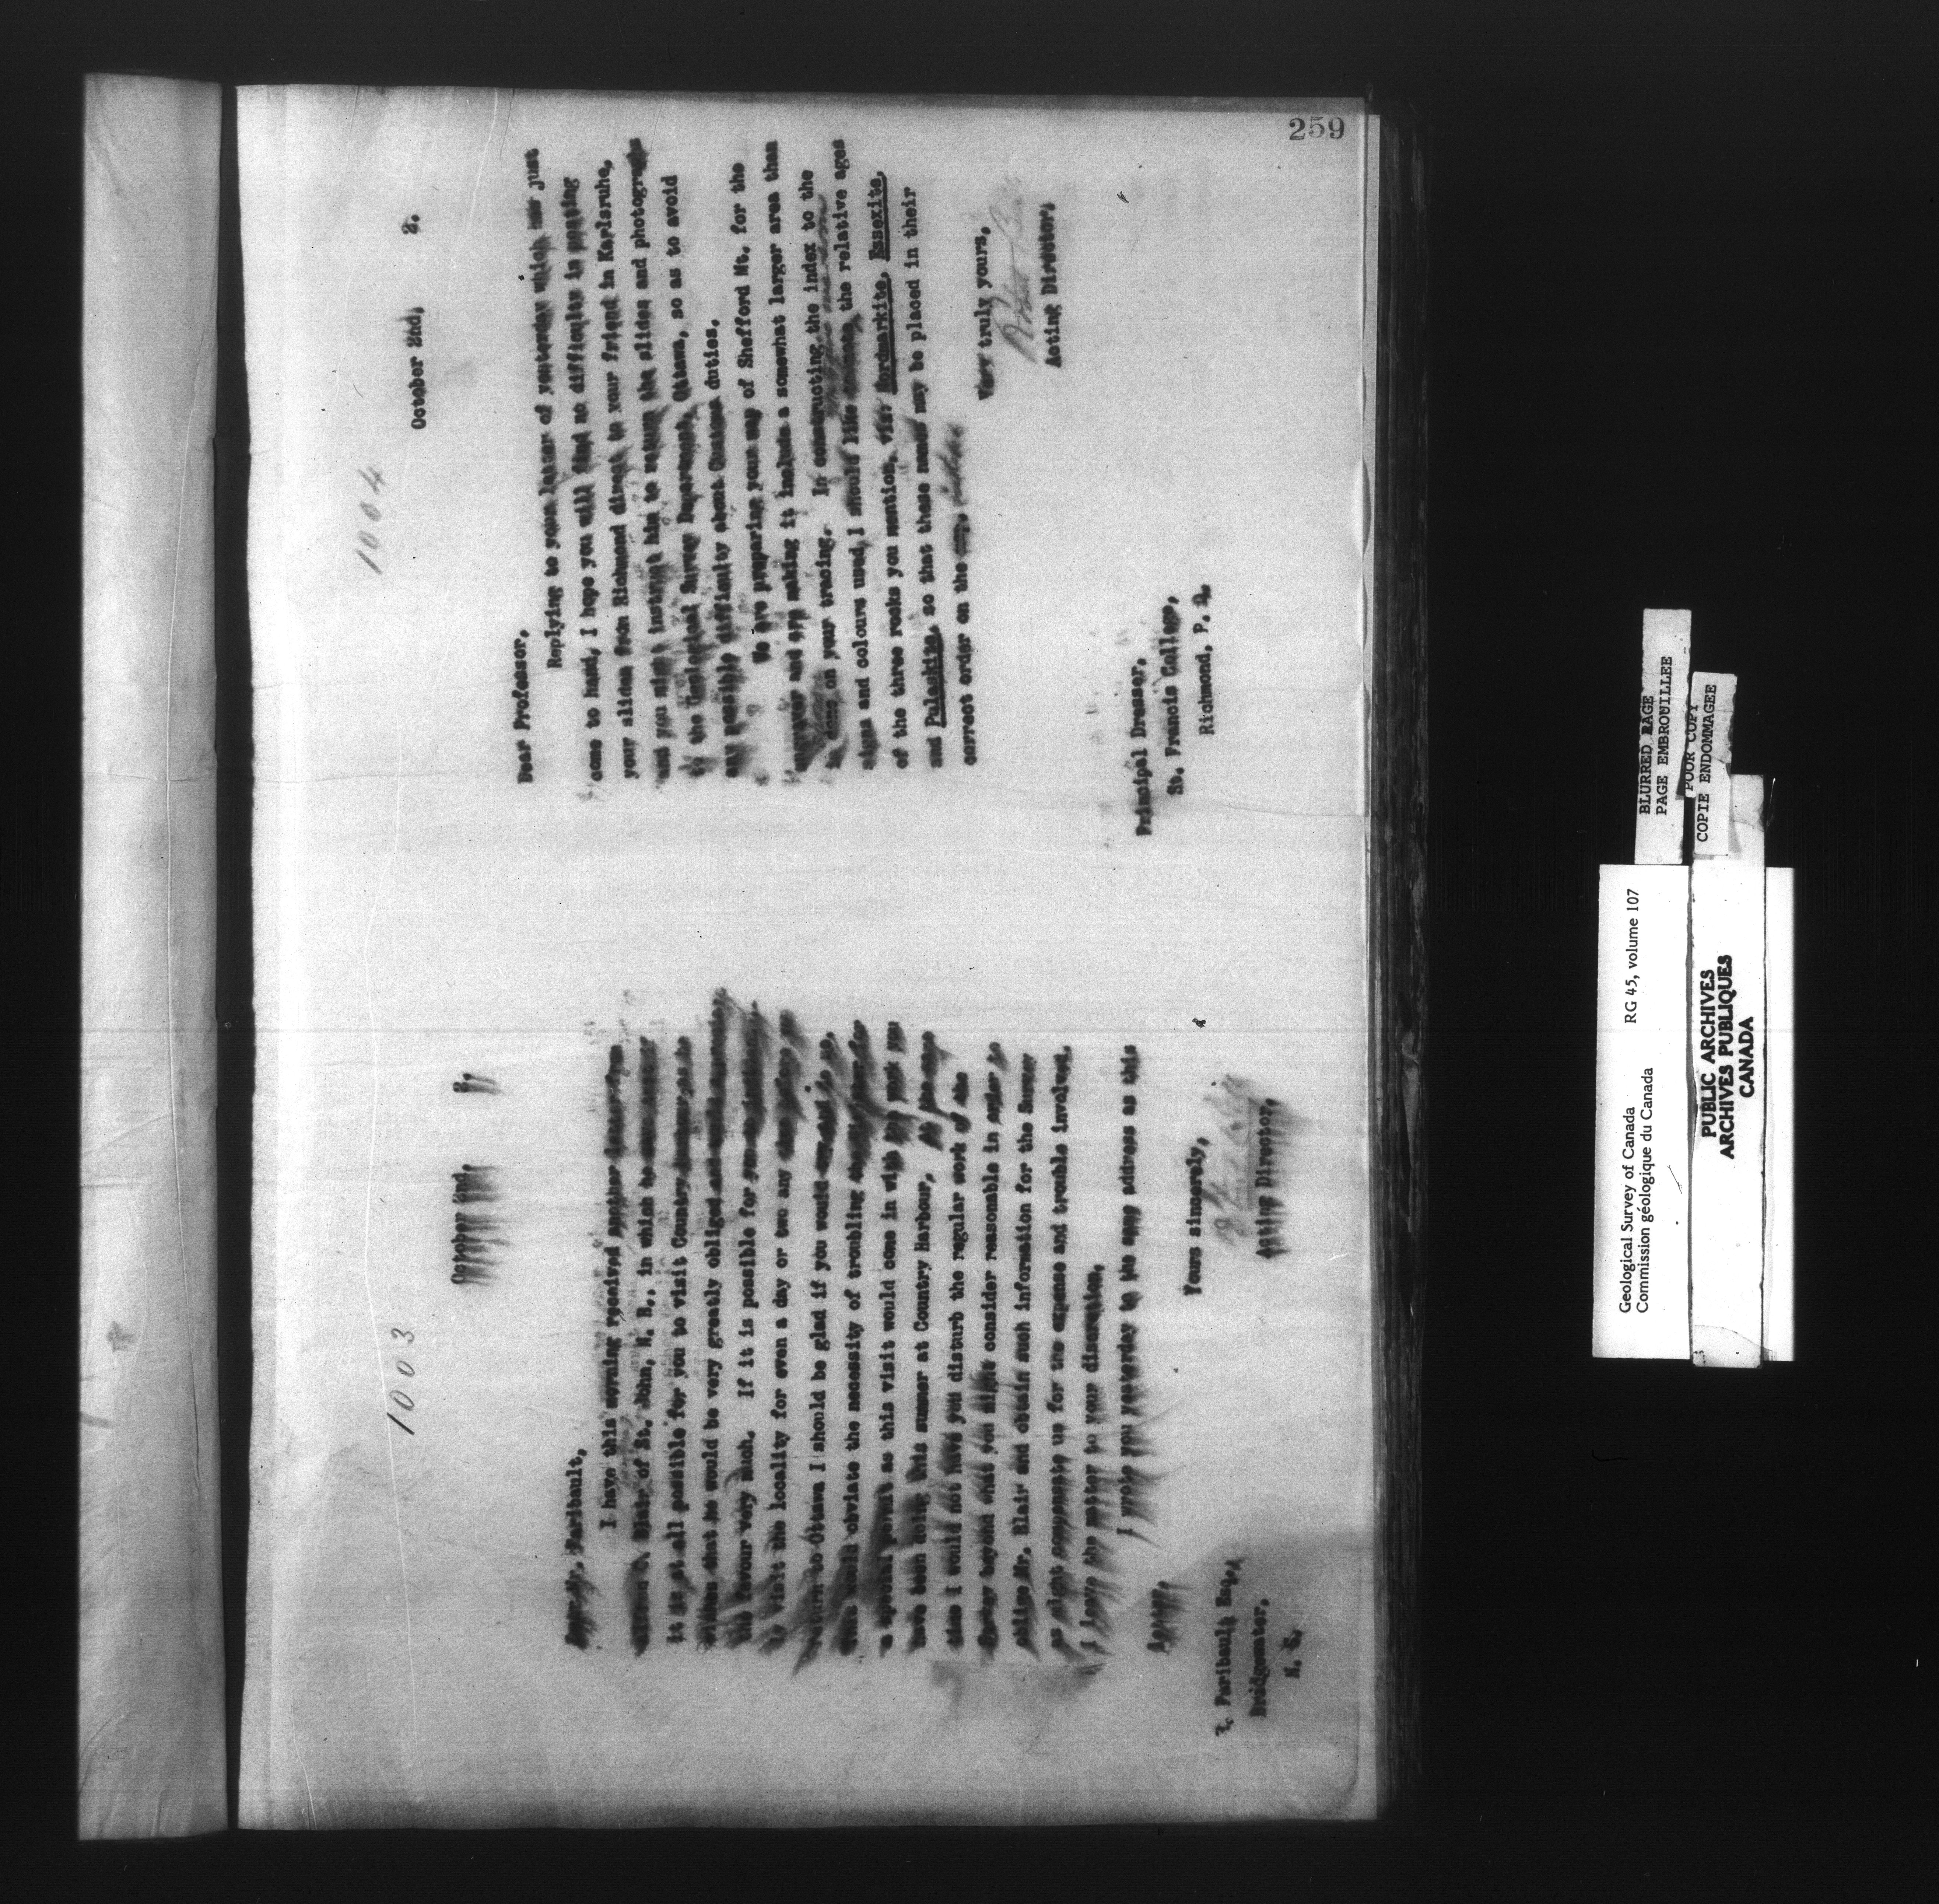 259
1003
October 2nd, 2.
Dear Mr. Faribault,
I have this morning received another
Blair of St. John, N. B., in which he
it is at all possible for you to visit Country
that he would be very greatly obliged
the favour very much. If it is possible for
to visit the locality for even a day or two any
return to Ottawa I should be glad if you would do so,
this would obviate the necessity of troubling
a special permit as this visit would come in with the work you
have been doing this summer at Country Harbour.
time I would not have you disturb the regular work of the
Survey beyond what you might consider reasonable in order to
oblige Mr. Blair and obtain such information for the Survey
as might compensate us for the expense and trouble involved.
I leave the matter to your discretion.
I wrote you yesterday to the same address as this
Yours sincerely,
Acting Director.
E. Faribault Esq.,
Bridgewater,
N. S.
1004
October 2nd, 2.
Dear Professor,
Replying to your letter of yesterday which just
come to hand, I hope you will find no difficulty in posting
your slides from Richmond direct to your friend in Karlsruhe,
and you might instruct him to return the slides and photographs
to the Geological Survey Department, Ottawa, so as to avoid
any possible difficulty about Customs duties.
We are preparing your map of Shefford Mt. for the
engraver and are making it include a somewhat larger area than
is done on your tracing. In constructing the index to the
signs and colours used, I should like the relative ages
of the three rocks you mention, viz: Nordmarkite, Essexite,
and Pulaskite, so that these names may be placed in their
correct order on the
Very truly yours,
Robert Bell
Acting Director.
Principal Dresser,
St. Francis College,
Richmond, P. Q.
BLURRED PAGE
PAGE EMBROUILLEE
POOR COPY
COPIE ENDOMMAGEE
Geological Survey of Canada
Commission géologique du Canada
RG 45, volume 107
PUBLIC ARCHIVES
ARCHIVES PUBLIQUES
CANADA